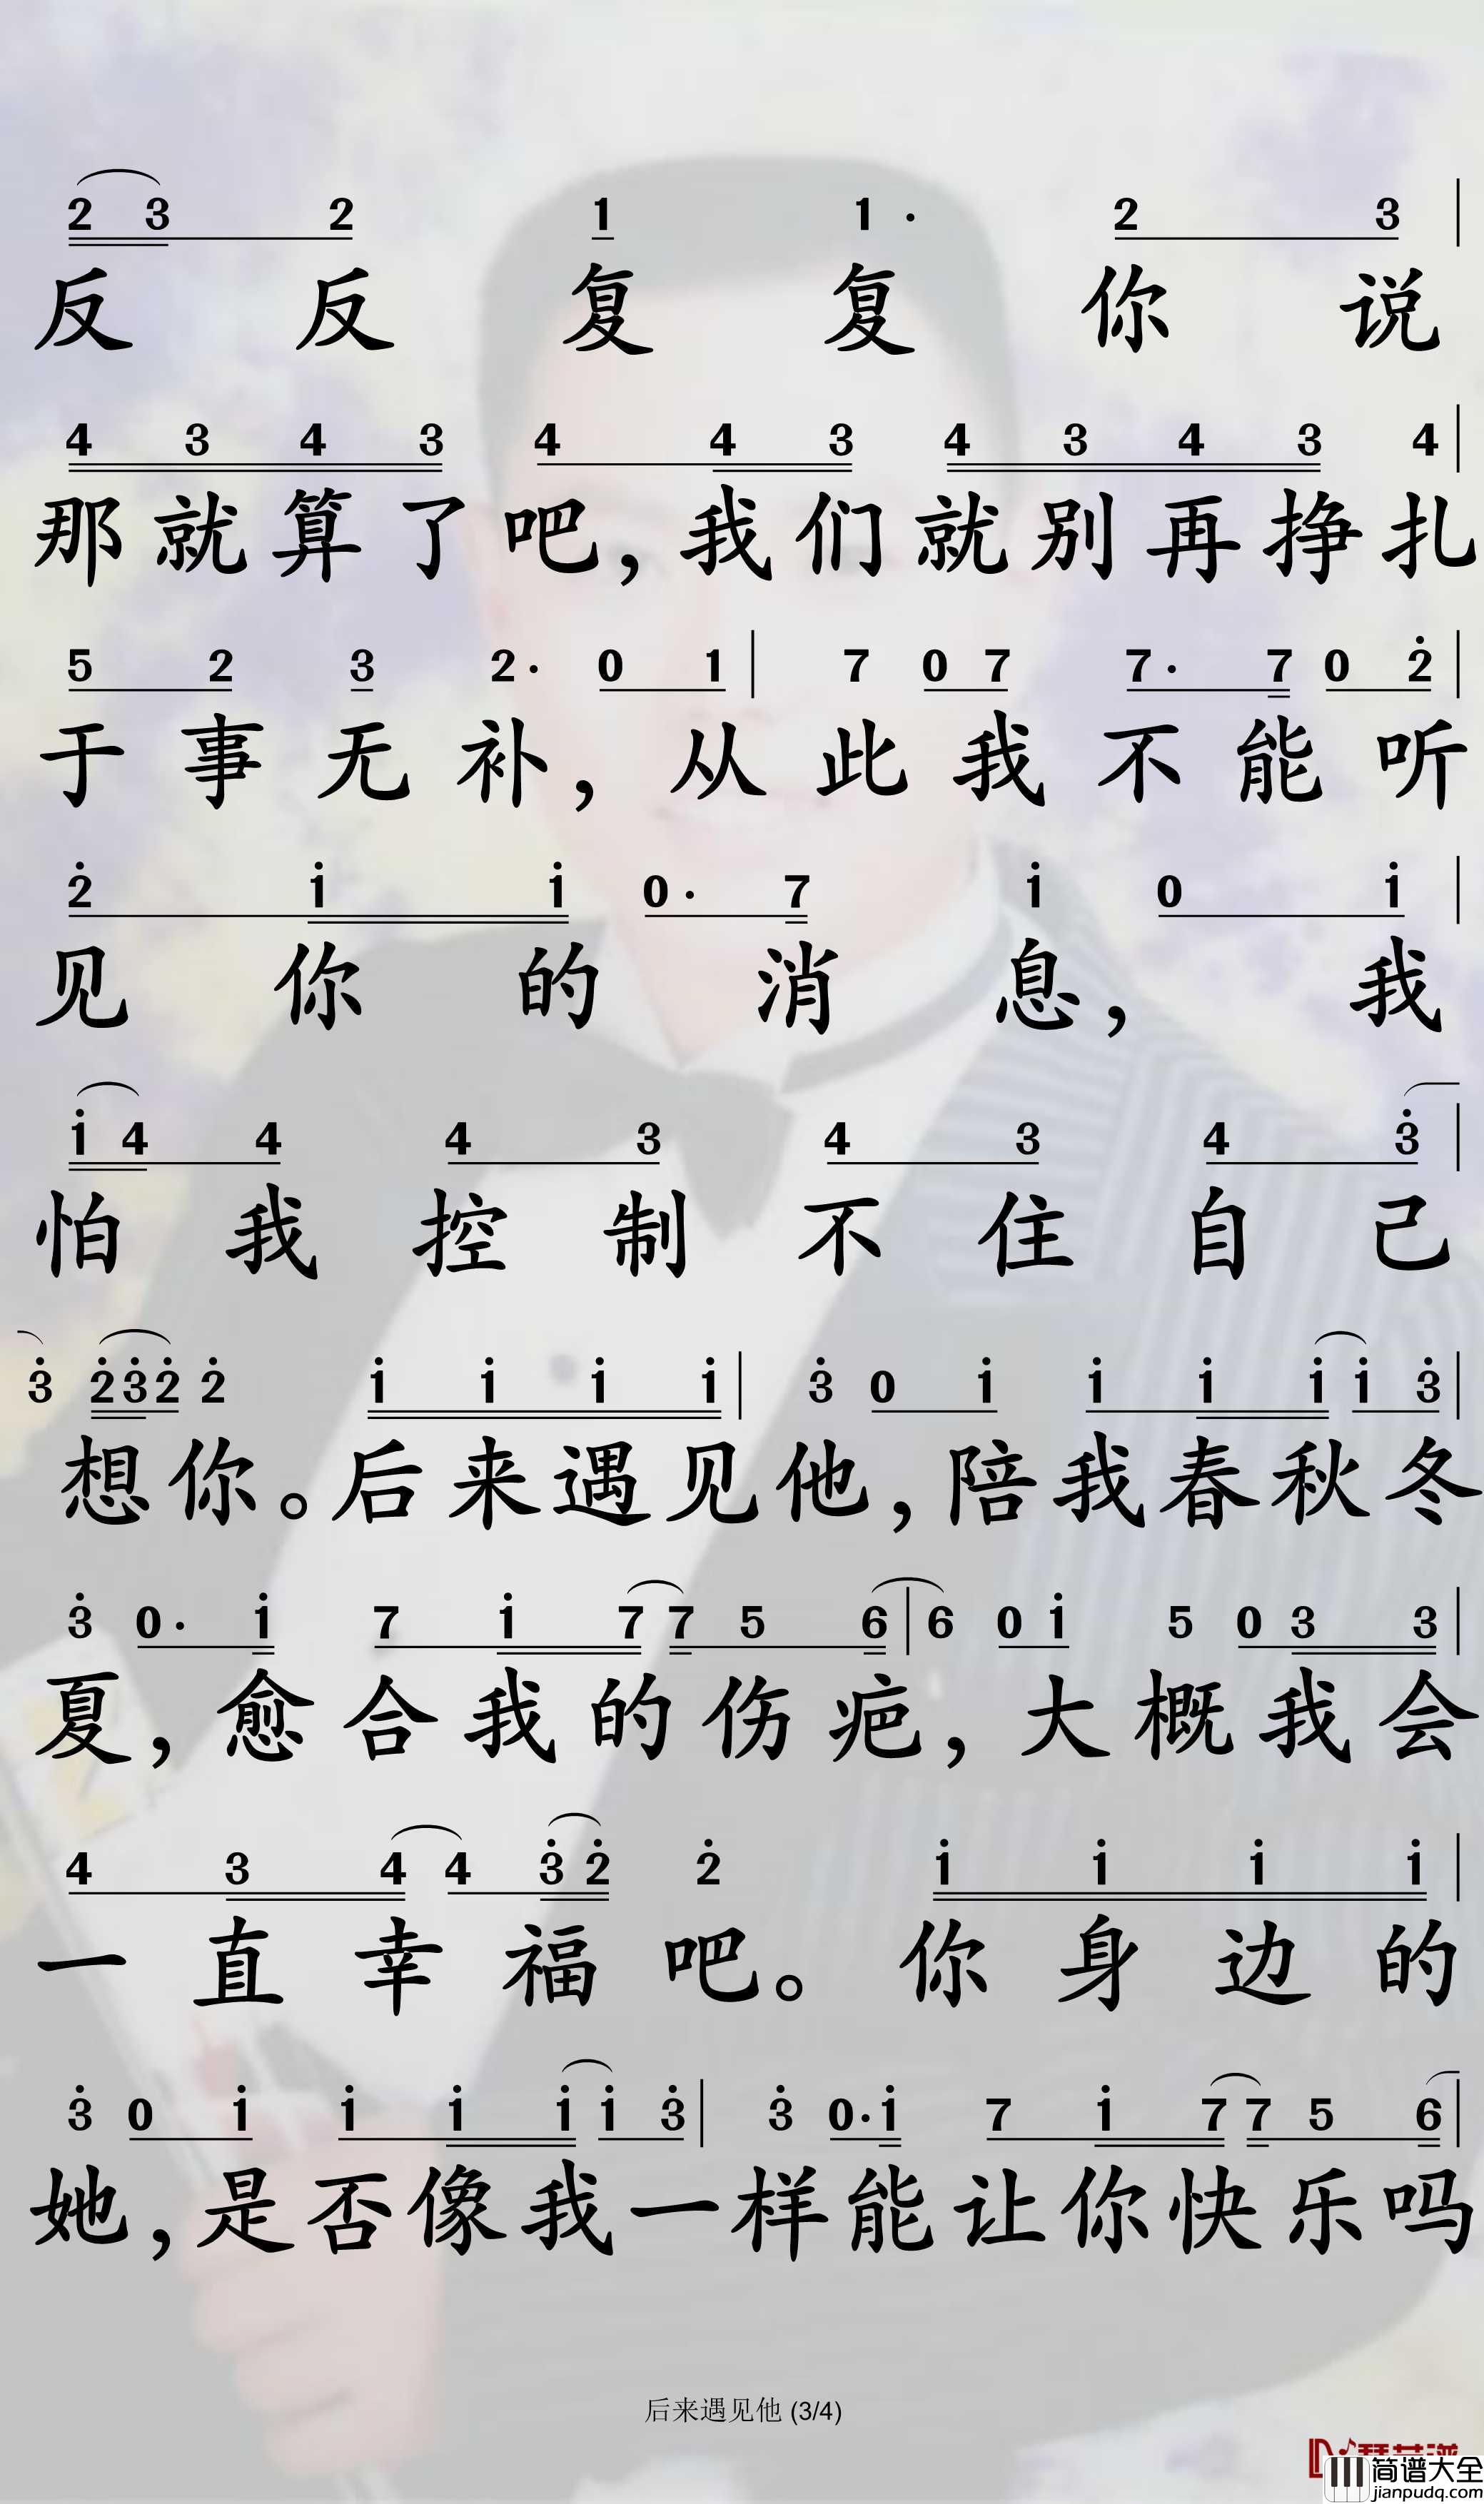 2 3 2 1 1 · 2 3
反 反 复 复 你 说
4 3 4 3 4 4 3 4 3 4 3 4
那 就 算 了 吧, 我 们 就 别 再 挣 扎
5 2 3 2· 0 1 7 0 7 7· 7 0 2
于 事 无 补, 从 此 我 不 能 听
2 1 1 0· 7 1 0 1
见 你 的 消 息, 我
1 4 4 4 3 4 3 4 3
怕 我 控 制 不 住 自 己
3 2 3 2 2 1 1 1 1 3 0 1 1 1 1 1 3
想 你。后 来 遇 见 他, 陪 我 春 秋 冬
3 0· 1 7 1 7 7 5 6 6 0 1 5 0 3 3
夏, 愈 合 我 的 伤 疤, 大 概 我 会
4 3 4 4 3 2 2 1 1 1 1
一 直 幸 福 吧。你 身 边 的
3 0 1 1 1 1 1 3 3 0· 1 7 1 7 7 5 6
她, 是 否 像 我 一 样 能 让 你 快 乐 吗
后来遇见他 (3/4)
简谱大全
jianpudq.com